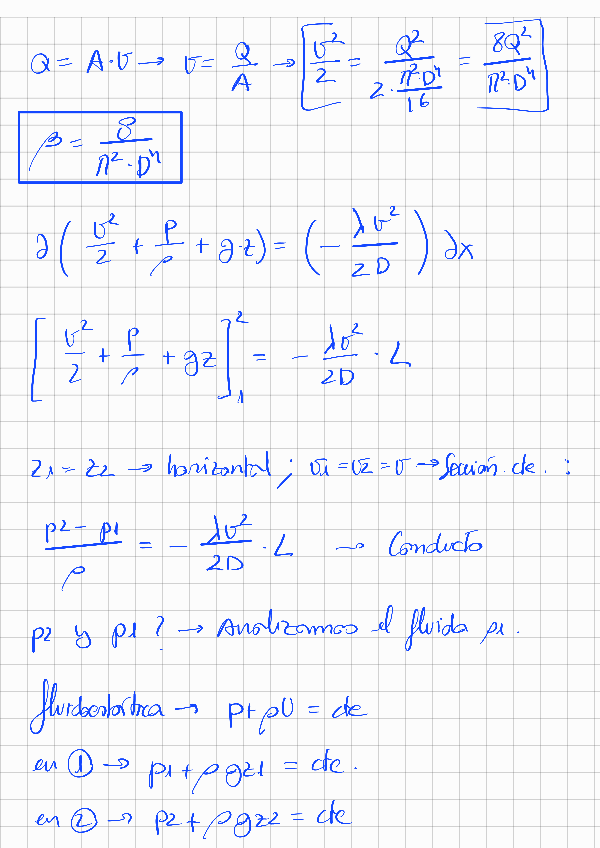 Q = A·v → v = Q/A → v²/2 = Q²/(2·π²·D⁴/16) = 8Q²/(π²·D⁴)
β = 8/(π²·D⁴)
∂(v²/2 + p/ρ + g·z) = (-λv²/2D) ∂x
[v²/2 + p/ρ + gz]₁² = - λv²/2D · L
z1 = z2 → horizontal ; v1 = v2 = v → Sección cte. :
(p2 - p1)/ρ = - λv²/2D · L → Conducto
p2 y p1? → Analizamos el fluido ρ1.
fluidoestática → p + ρU = cte
en ① → p1 + ρgz1 = cte.
en ② → p2 + ρgz2 = cte